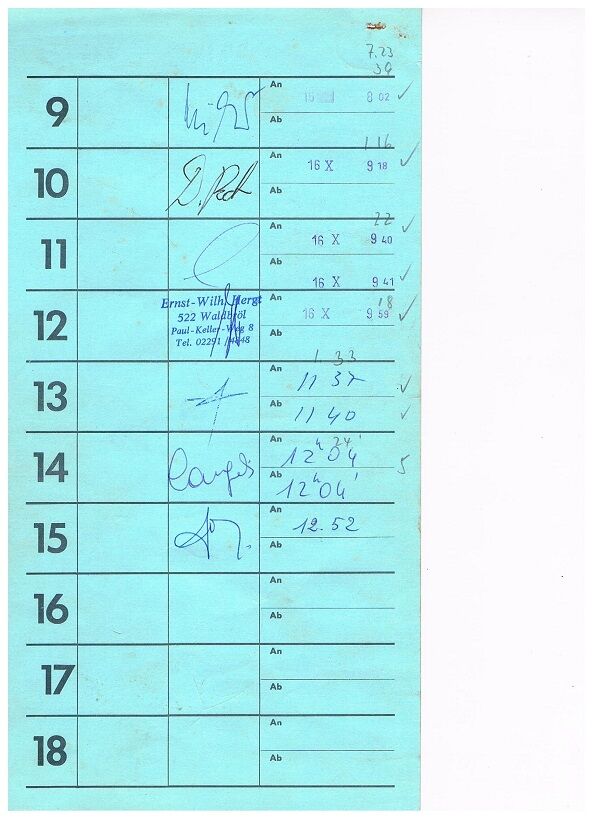 7.23
39
9
An
15 8 02
Ab
1 16
10
An
16 X 9 18
Ab
22
11
An
16 X 9 40
Ab
16 X 9 41
18
12
Ernst-Wilh. Hergt
522 Waldbröl
Paul-Keller-Weg 8
Tel. 02291 / 4848
An
16 X 9 59
Ab
1 33
13
An
11 37
Ab
11 40
24'
14
An
12h 04'
5
Ab
12h 04'
15
An
12.52
Ab
16
An
Ab
17
An
Ab
18
An
Ab